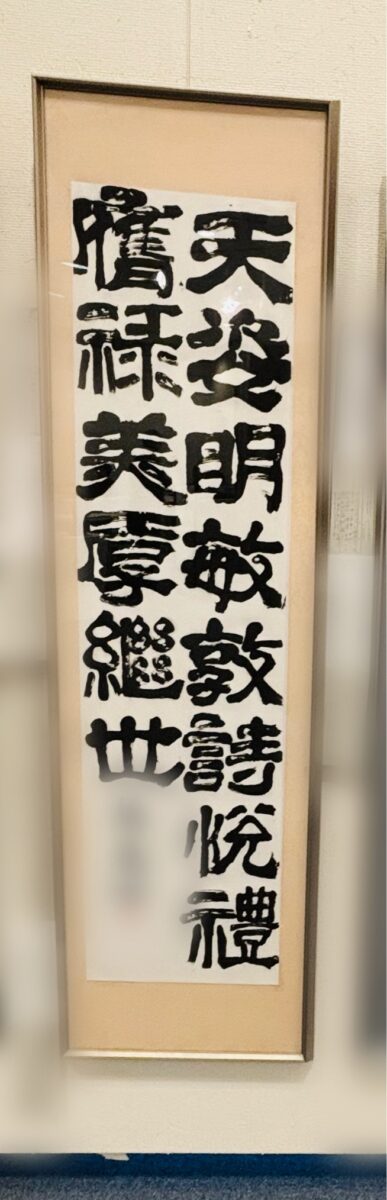 天姿明敏敦詩悦禮
膺禄美厚繼世